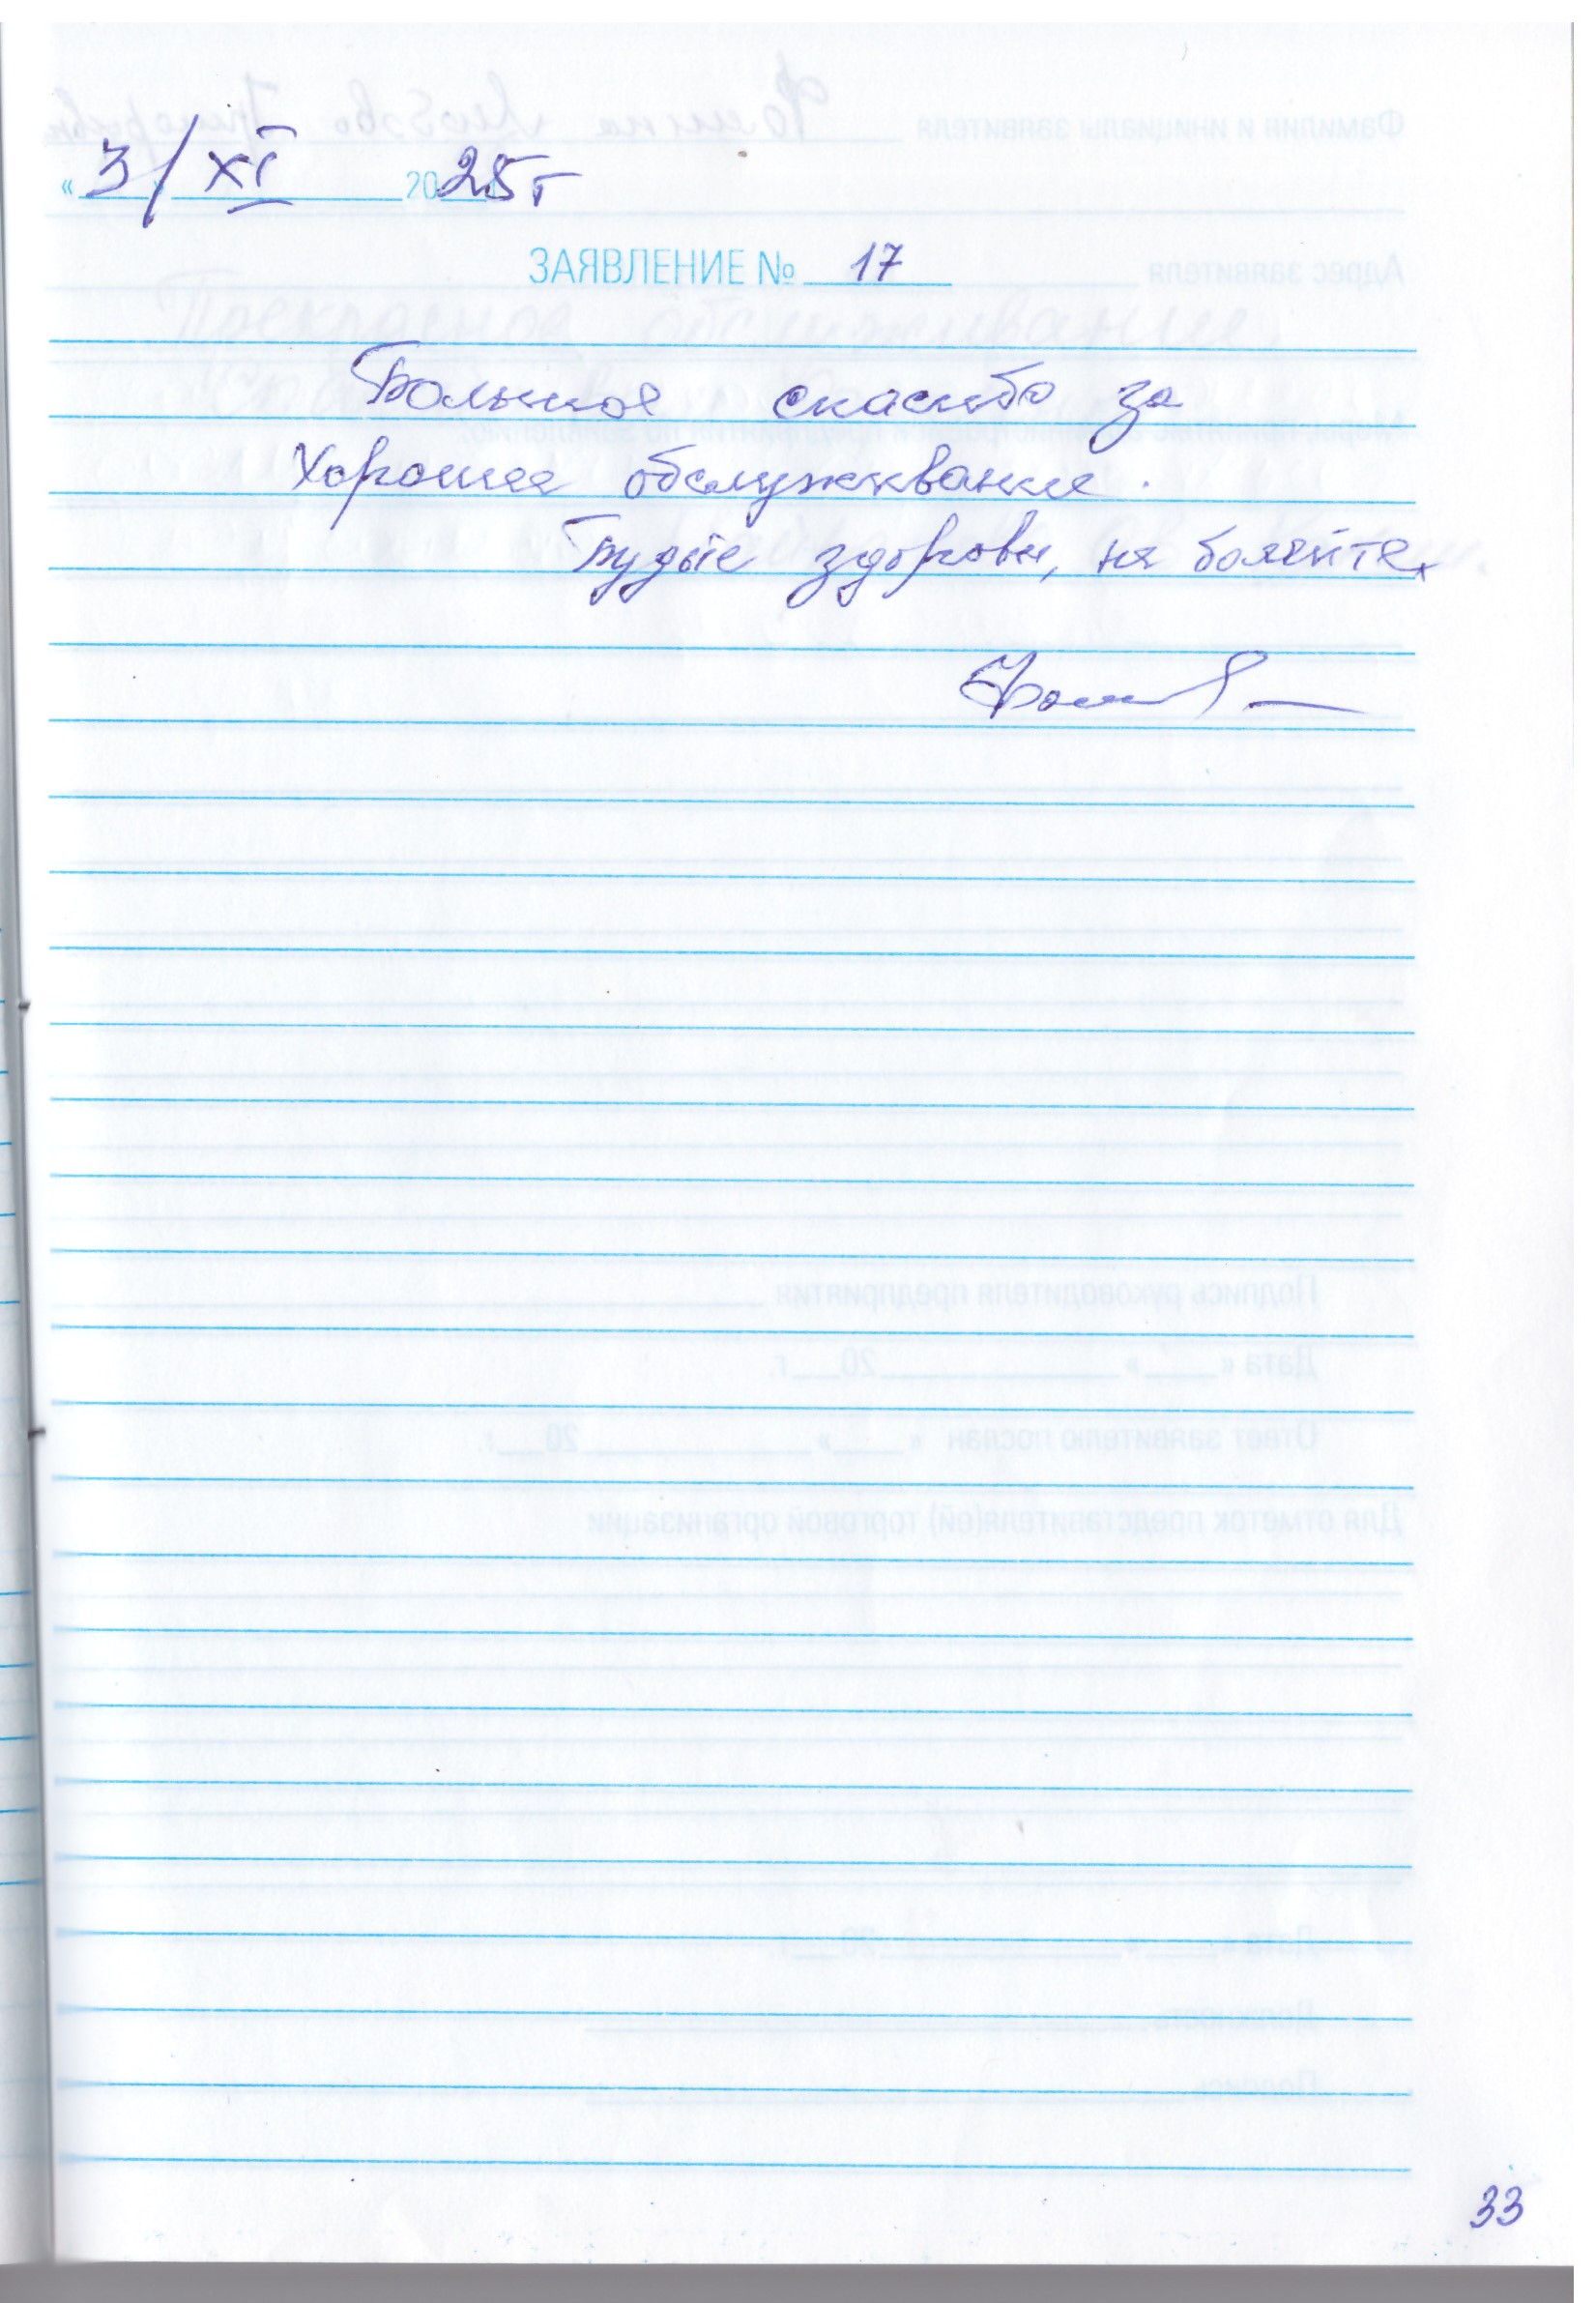 «3/» XI 2025г
ЗАЯВЛЕНИЕ № 17
Большое спасибо за
хорошее обслуживание.
Будьте здоровы, не болейте
33